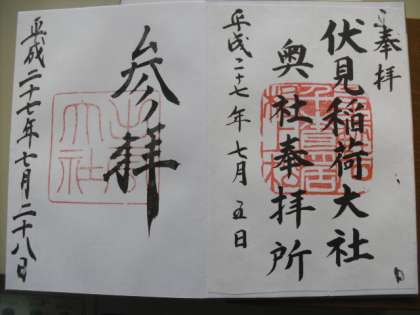 奉拝
伏見稲荷大社
奥社奉拝所
平成二十七年七月五日
参拝
平成二十七年七月二十八日